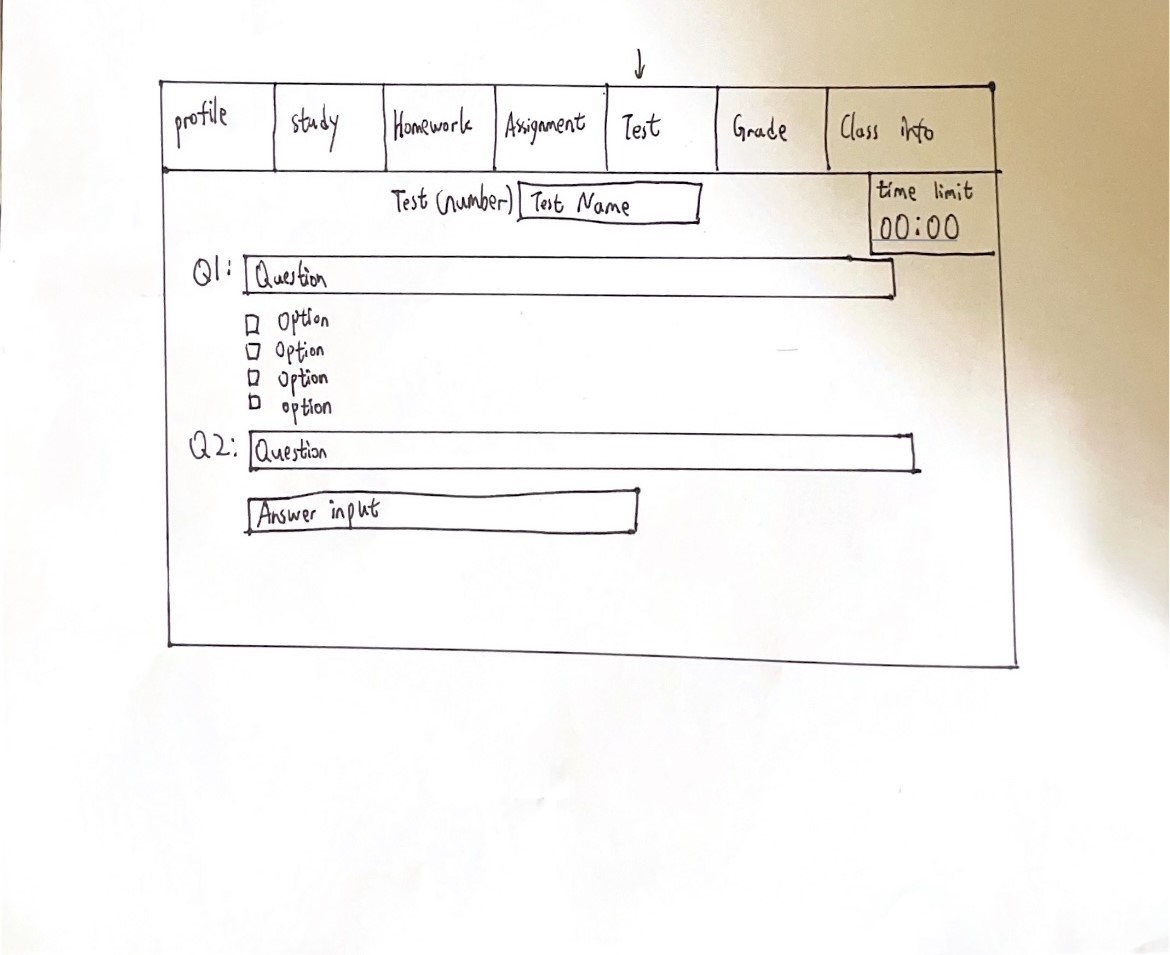 profile study Homework Assignment Test Grade Class info
Test (number) Test Name
time limit
00:00
Q1: Question
Option
Option
Option
option
Q2: Question
Answer input